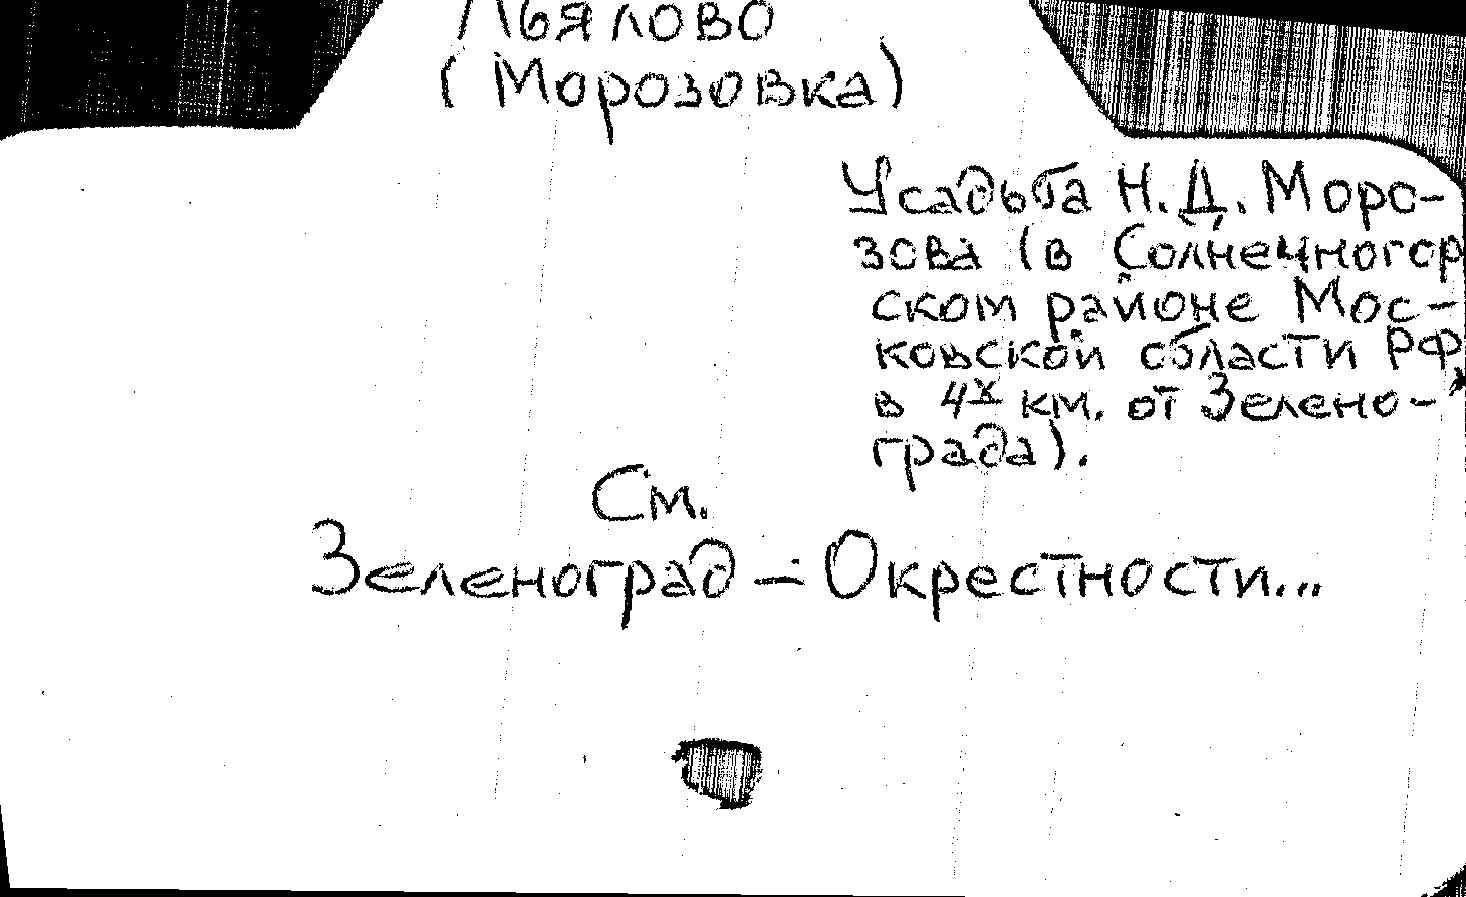 Льялово
(Морозовка)
Усадьба Н.Д. Моро-
зова (в Солнечногор
ском районе Мос-
ковской области РФ,
в 4х км. от Зелено-
града).
См.
Зеленоград – Окрестности...